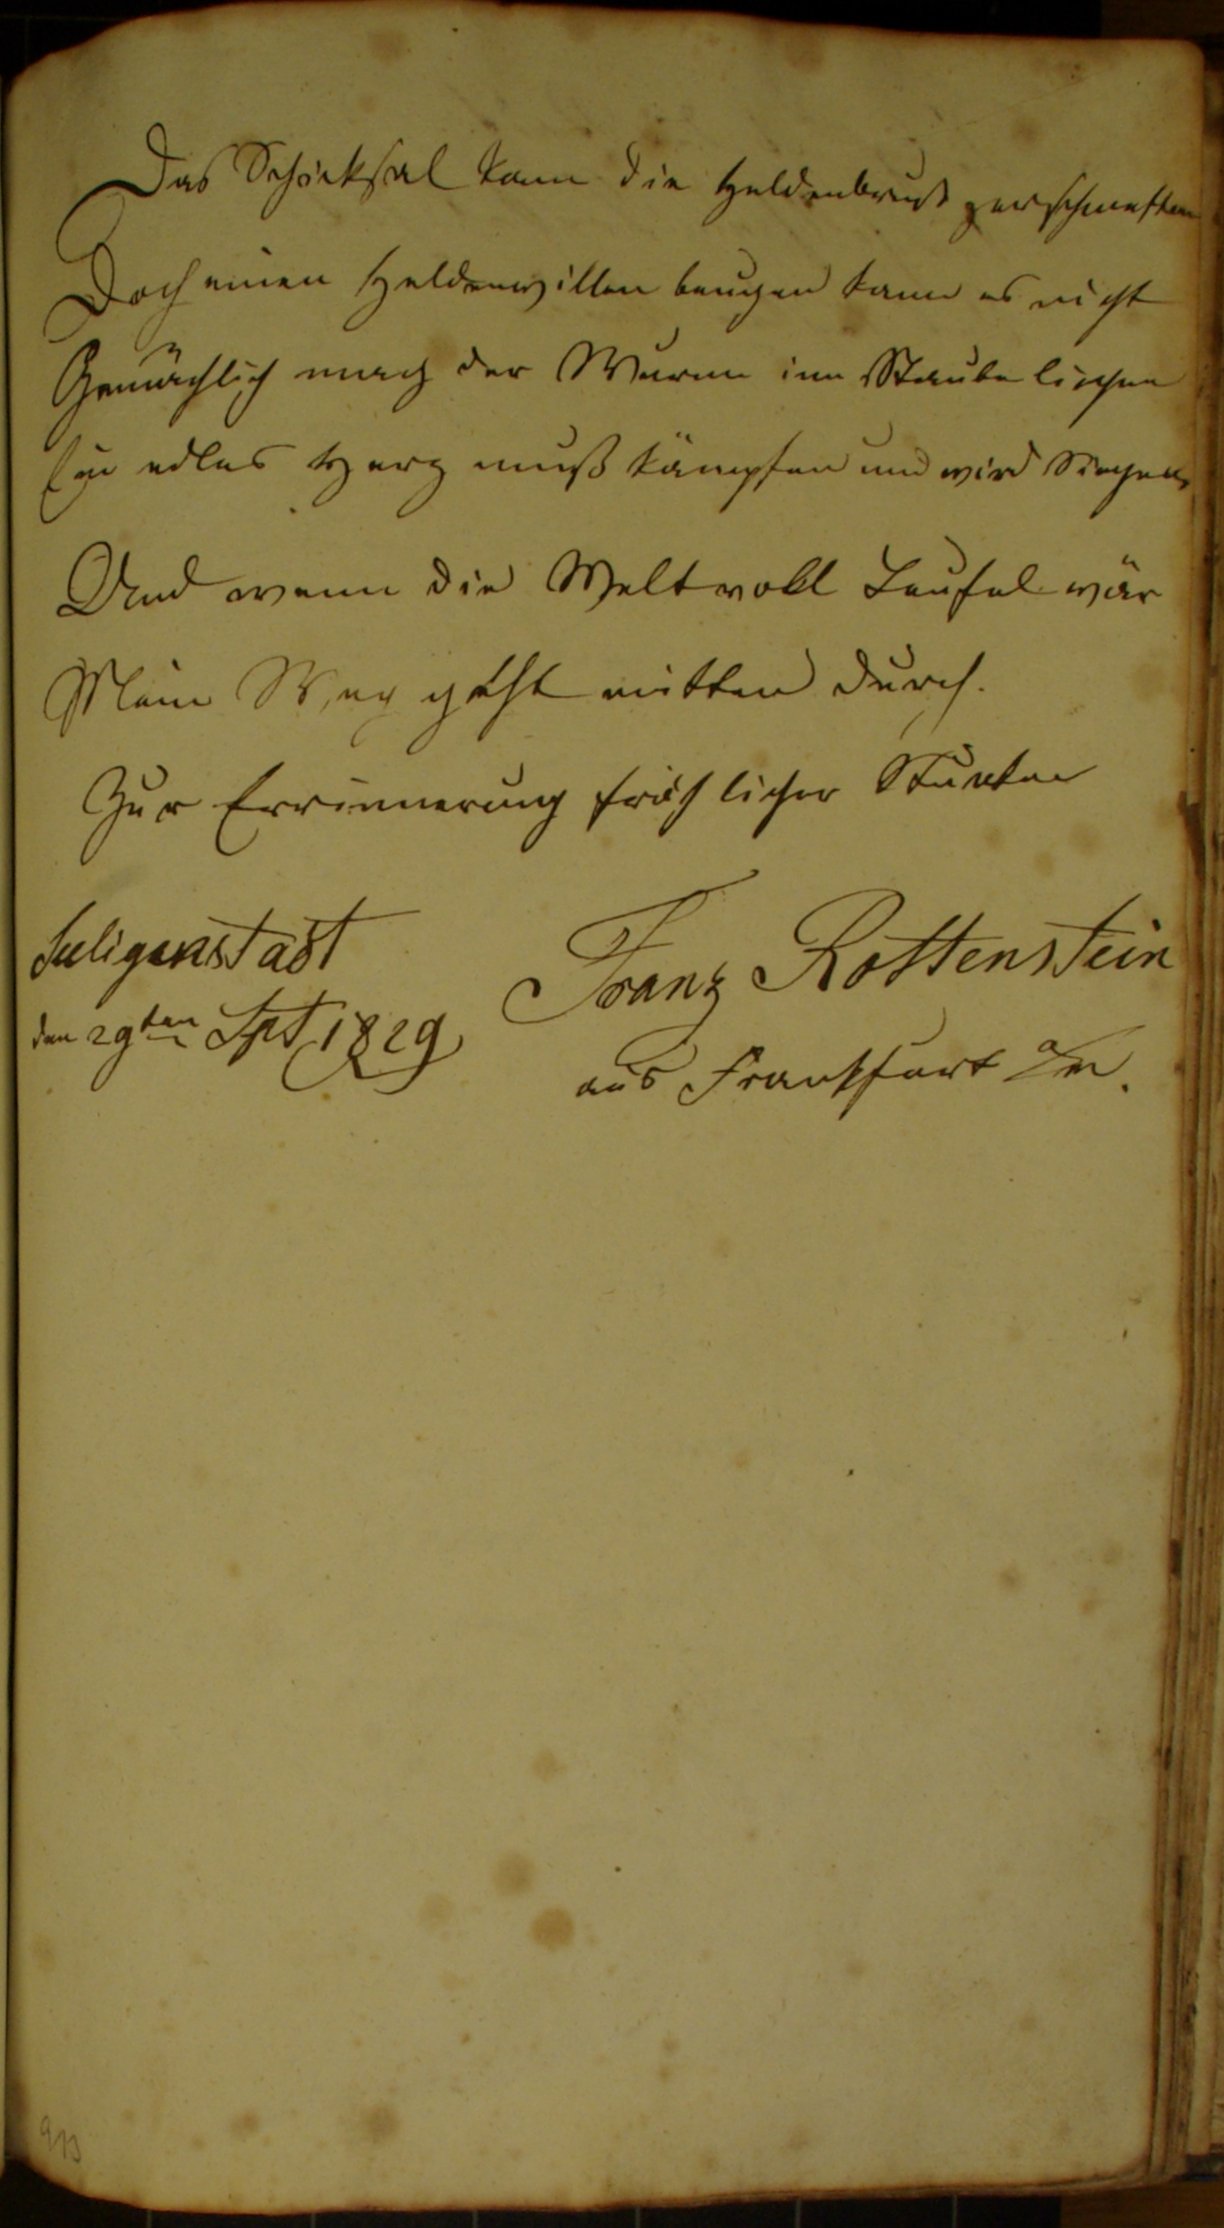 Das Schicksal kann die Heldenbrust zerschmettern
Doch einen Heldenwillen beugen kann es nicht
Gemächlich mag der Wurm im Staube liegen
Ein edles Herz muß kämpfen und wird Siegen
Und wenn die Welt voll Teufel wär
Mein Weg geht mitten durch.
Zur Errinnerung fröhlicher Stunden
Seeligenstadt
den 29ten Spt 1829
Franz Rottenstein
aus Frankfurt